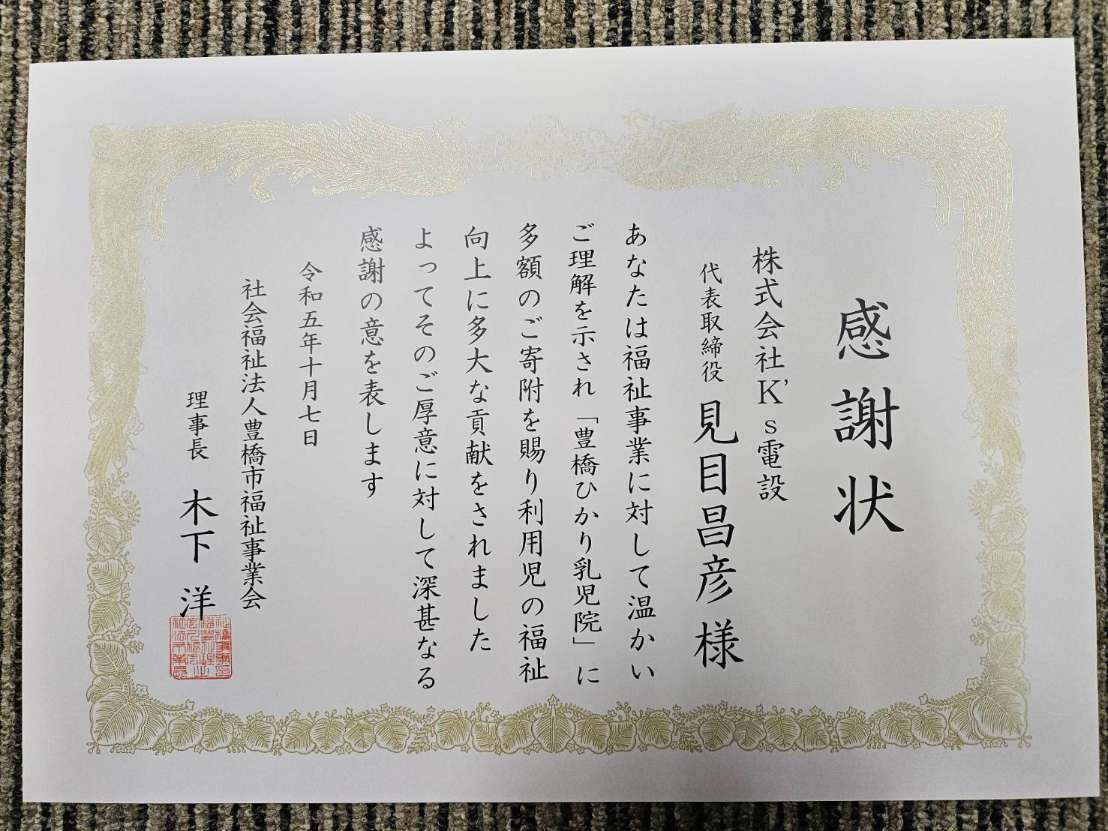 感謝状
株式会社K's電設
代表取締役 見目昌彦様
あなたは福祉事業に対して温かい
ご理解を示され「豊橋ひかり乳児院」に
多額のご寄附を賜り利用児の福祉
向上に多大な貢献をされました
よってそのご厚意に対して深甚なる
感謝の意を表します
令和五年十月七日
社会福祉法人豊橋市福祉事業会
理事長 木下 洋